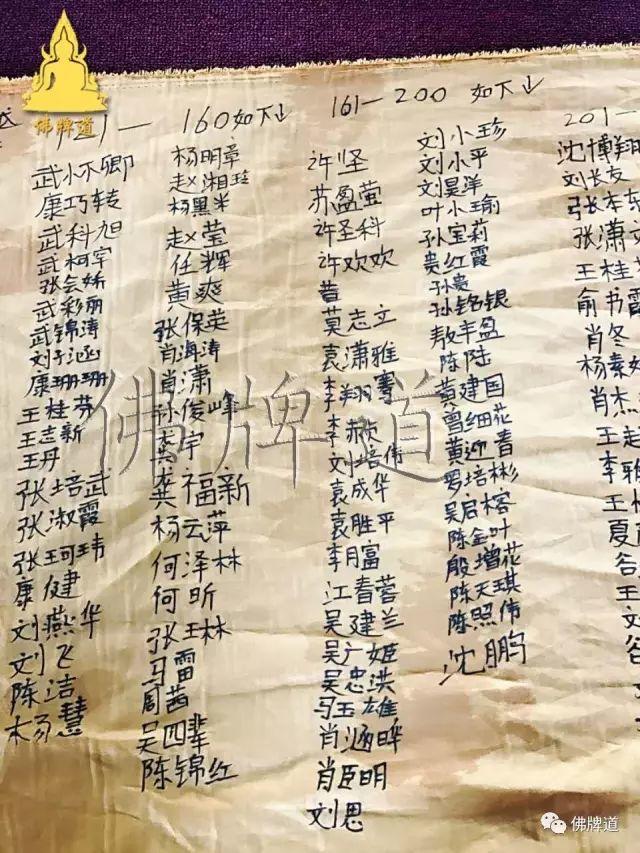 佛牌道
121— 160如下↓
武小不卿
康巧转
武科旭
武柯军
张会娇
武彩丽
武锦涛
刘子涵
康珊珊
王桂芬
王志新
王丹
张培武
张淑霞
张珂玮
康健
刘燕华
刘飞
陈洁
杨慧
杨明章
赵湘玲
杨黑米
赵莹
任辉
黄爽
张保英
肖海涛
肖潇
孙俊峰
龚宇
龚福新
杨云萍
何泽林
何昕
张玉林
马雷
周茜
吴四辈
陈锦红
161—200 如下↓
许坚
苏盈萤
许圣科
许欢欢
昔
莫志立
袁潇雅
李翔骞
李焱
刘培伟
袁成华
袁胜平
李月富
江春蓉
吴建兰
吴广姬
吴忠洪
马玉雄
肖涵晔
肖臣明
刘思
刘小珍
刘小平
刘昊洋
叶小瑜
孙宝莉
贵红霞
孙贵
孙铭银
敖丰盈
陈陆
黄建国
曾细花
黄迎春
罗培彬
吴启榕
陈金叶
殷增花
陈天琪
陈照伟
沈鹏
201—
沈博翔
刘长友
张本东
张潇文
王桂
俞书霞
肖冬
杨素
肖杰
王起
李雅
王
夏
谷
王
文
谷
佛牌道
佛牌道